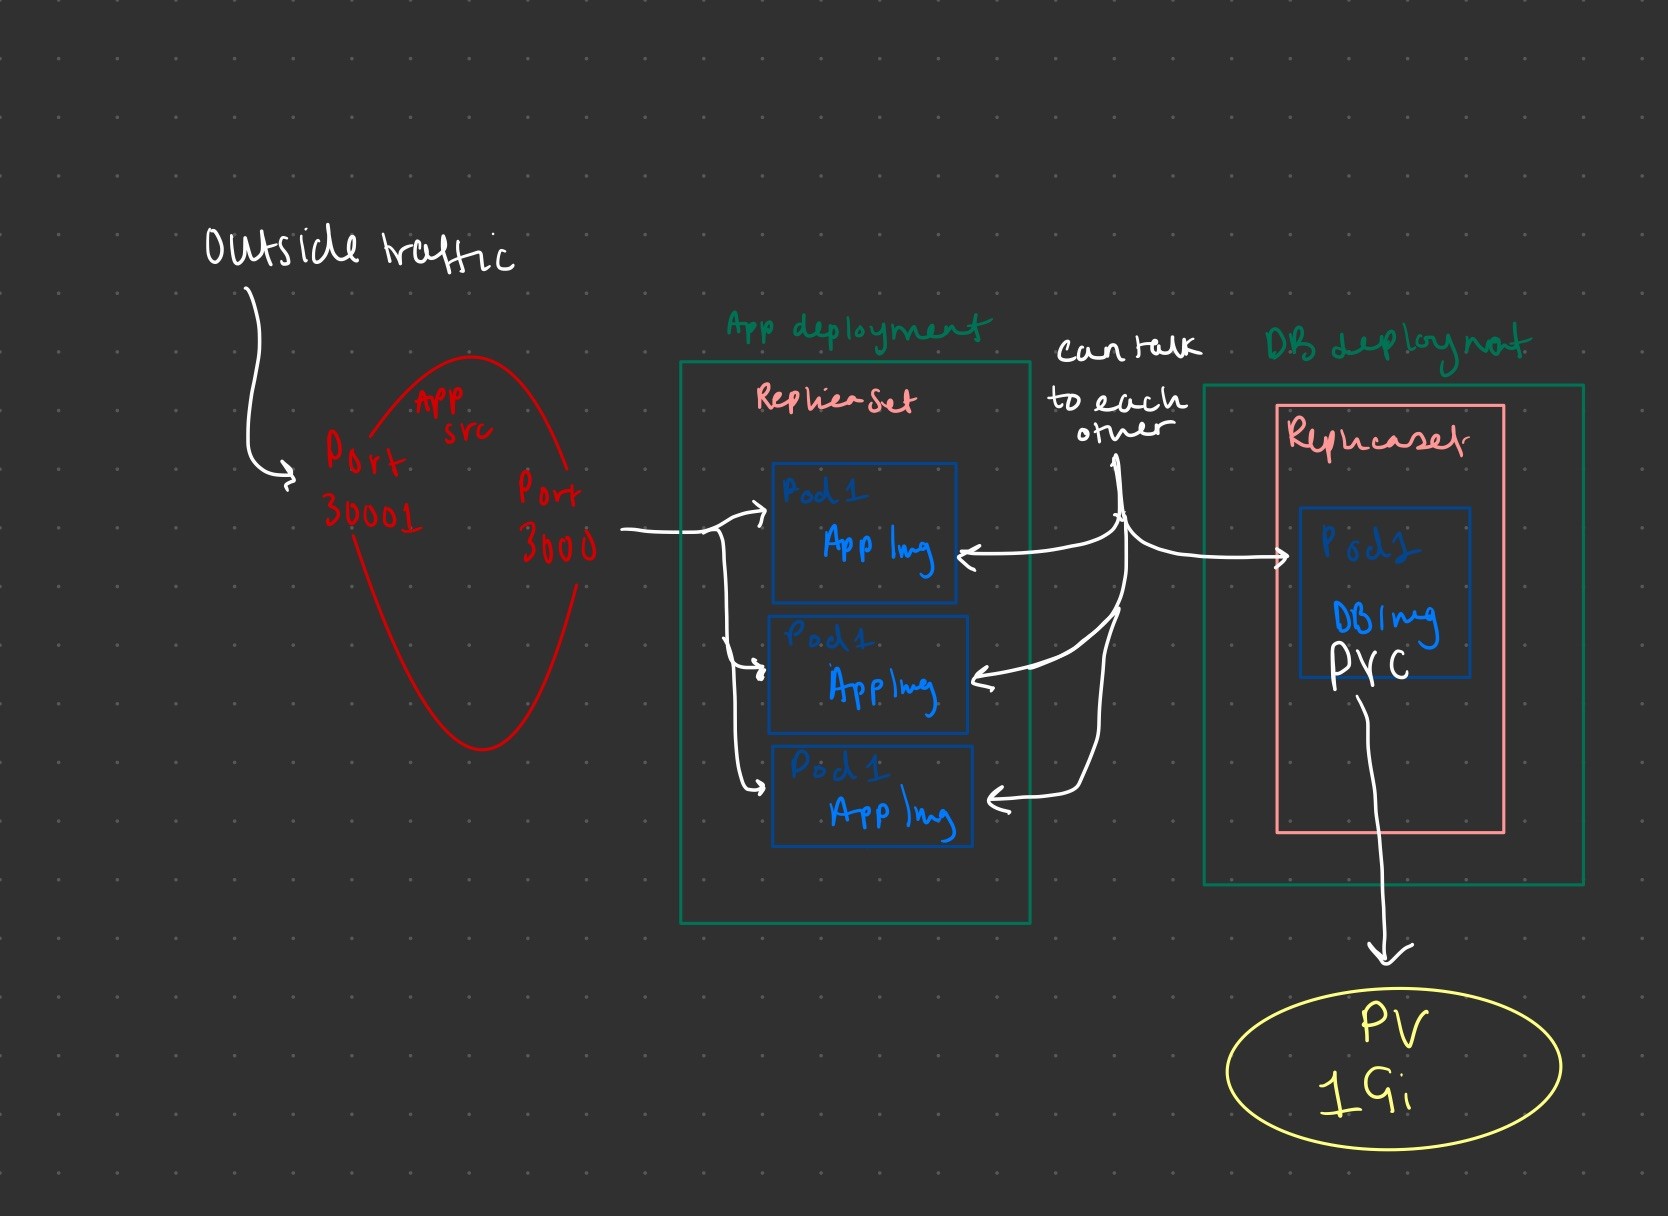 Outside traffic
App
src
Port
30001
Port
3000
App deployment
Replicaset
Pod 1
App Img
Pod 1
App Img
Pod 1
App Img
can talk
to each
other
DB deploymnt
Replicaset
Pod 1
DB Img
PVC
PV
1Gi